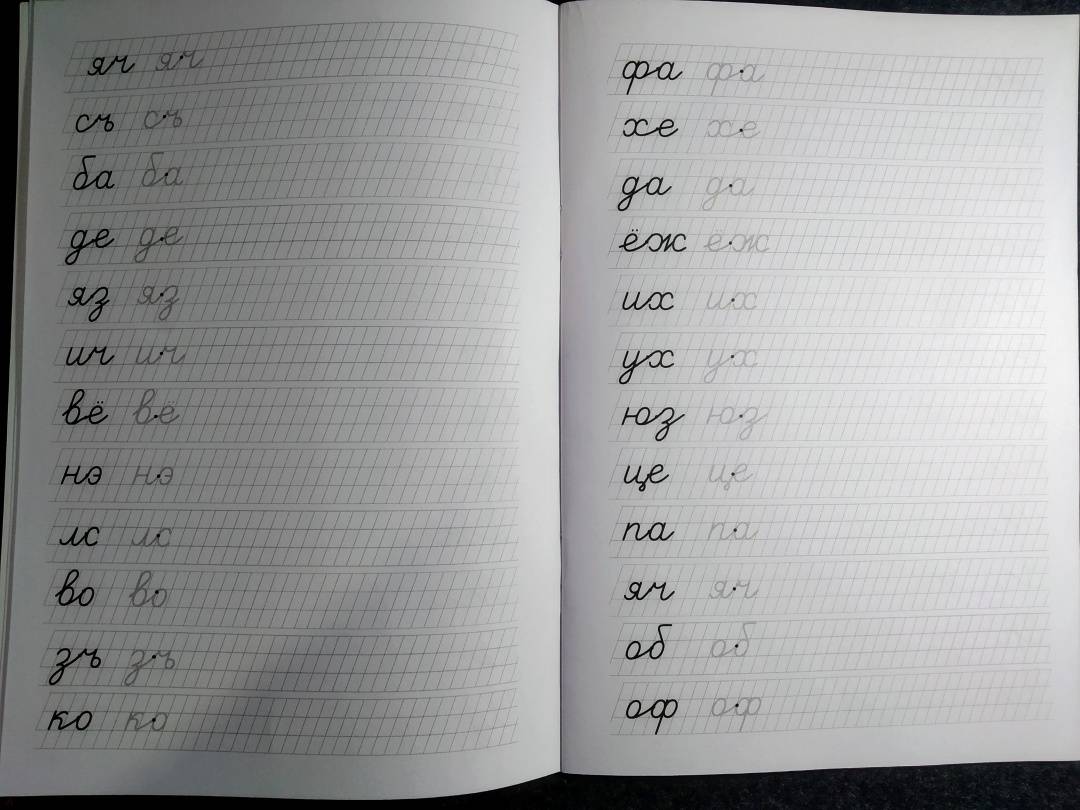 яч яч
съ съ
ба ба
де де
яз яз
ич ич
вё вё
нэ нэ
лс лс
во во
зъ зъ
ко ко
фа фа
хе хе
да да
ёж ёж
их их
ух ух
юз юз
це це
па па
яч яч
об об
оф оф